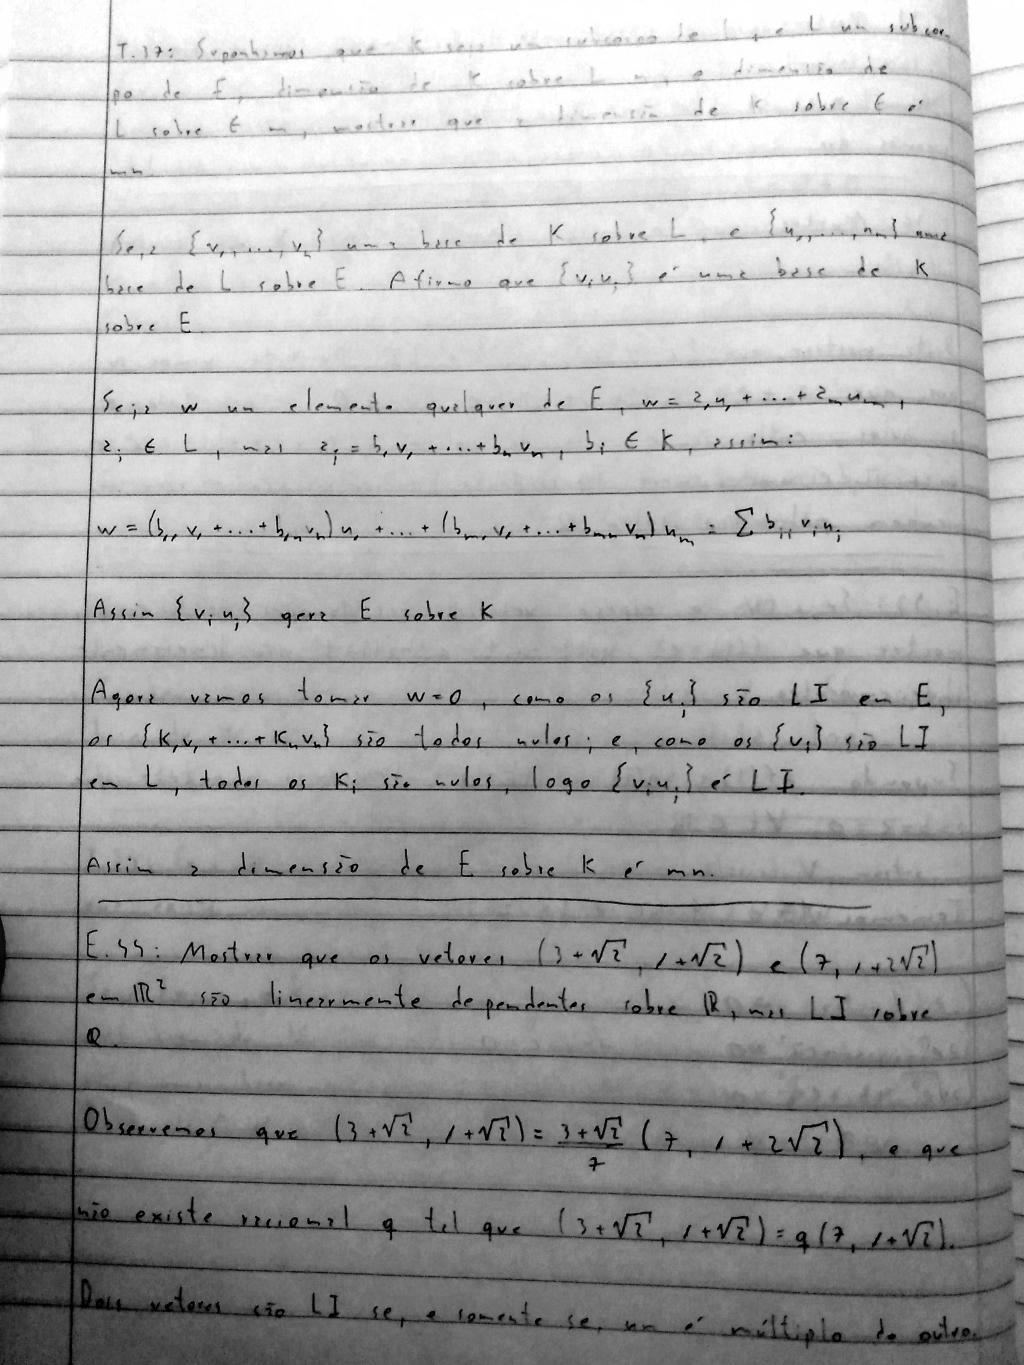 T.17: Suponhamos que K seja um subcorpo de L, e L um subcor-
po de E, dimensão de K sobre L n, e dimensão de
L sobre E m, mostrar que a dimensão de K sobre E é
mn.
Seja {v₁,...,vₙ} uma base de K sobre L, e {u₁,...,uₘ} uma
base de L sobre E. Afirmo que {vᵢuⱼ} é uma base de K
sobre E.
Seja w um elemento qualquer de E, w = a₁u₁ + ... + aₘuₘ,
aᵢ ∈ L, mas aᵢ = b₁v₁ + ... + bₙvₙ, bᵢ ∈ K, assim:
w = (b₁₁v₁ + ... + b₁ₙvₙ)u₁ + ... + (bₘ₁v₁ + ... + bₘₙvₙ)uₘ = Σ bᵢⱼvᵢuⱼ
Assim {vᵢuⱼ} gera E sobre K
Agora vamos tomar w=0, como os {uⱼ} são LI em E,
os {k₁v₁ + ... + kₙvₙ} são todos nulos; e, como os {vᵢ} são LI
em L, todos os kᵢ são nulos, logo {vᵢuⱼ} é LI.
Assim a dimensão de E sobre K é mn.
E.44: Mostrar que os vetores (3+√2, 1+√2) e (7, 1+2√2)
em ℝ² são linearmente dependentes sobre ℝ, mas LI sobre
ℚ.
Observemos que (3+√2, 1+√2) = (3+√2)/7 (7, 1+2√2), e que
não existe racional q tal que (3+√2, 1+√2) = q(7, 1+√2).
Dois vetores são LI se, e somente se, um é múltiplo do outro.